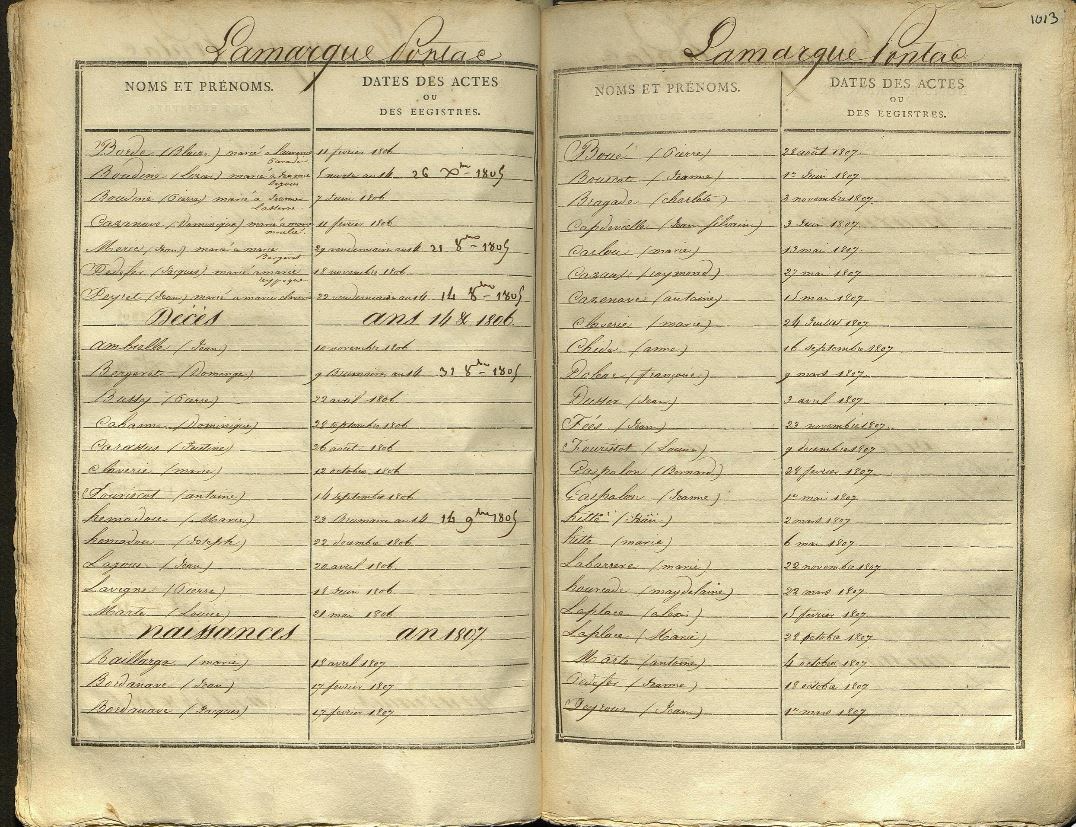 1013
Lamarque Pontac
NOMS ET PRÉNOMS. DATES DES ACTES
OU
DES REGISTRES.
Borde (Blaise) marié à 11 février 1806
Boudine marié à Jeanne 5 nivose an 14 26 Xbre 1805
Boudine (Pierre) marié à Jeanne 7 Juin 1806
Cazenave (Dominique) marié à marie 11 février 1806
Merce (Jean) marié à marie 29 vendemiaire an 14 21 8bre 1805
Bergeret
Pedefer (Jacques) marié à marie 18 novembre 1806
Peyret (Jean) marié à marie 22 vendemiaire an 14 14 8bre 1805
Décès ans 14 & 1806
ambielle (Jean) 10 novembre 1806
Bergeret (Dominge) 9 Brumaire an 14 31 8bre 1805
Bussy (Pierre) 22 avril 1806
Cabanne (Dominique) 28 septembre 1806
Carassus (Justine) 26 août 1806
Claverie (marie) 12 octobre 1806
Fouriscot (antoine) 14 septembre 1806
homadou (Marie) 23 Brumaire an 14 14 9bre 1805
homadou (Joseph) 22 decembre 1806
Lagoue (Jean) 20 avril 1806
Lavigne (Pierre) 18 Juin 1806
Marte (Louise) 21 mai 1806
naissances an 1807
Baillarga (marie) 18 avril 1807
Bordanave (Jean) 17 fevrier 1807
Bordanave (Jacques) 17 fevrier 1807
Lamarque Pontac
NOMS ET PRÉNOMS. DATES DES ACTES
OU
DES REGISTRES.
Boué (Pierre) 28 août 1807
Bourrat (Jeanne) 1er Juin 1807
Bragade (charlote) 3 novembre 1807
Capdevielle (Jean Silvain) 3 Juin 1807
Carlou (marie) 13 mai 1807
Cazaux (raymond) 27 mai 1807
Cazenave (antoine) 15 mai 1807
Claverie (marie) 24 Juillet 1807
Chide (anne) 16 septembre 1807
Doleac (françoise) 9 mars 1807
Dusser (Jean) 3 avril 1807
Féés (Jean) 23 novembre 1807
Fouriscot (Louise) 9 decembre 1807
Gaspalon (Bernard) 28 fevrier 1807
Gaspalou (Jeanne) 1er mai 1807
hitte 2 mars 1807
hitte (marie) 6 mai 1807
Labarrere (marie) 22 novembre 1807
hourcade (magdelaine) 22 mars 1807
Laplace (alexis) 15 fevrier 1807
Laplace (Marie) 28 octobre 1807
Marte (antoine) 4 octobre 1807
Pedefer (Jeanne) 18 octobre 1807
Peyrou (Jean) 1er mars 1807